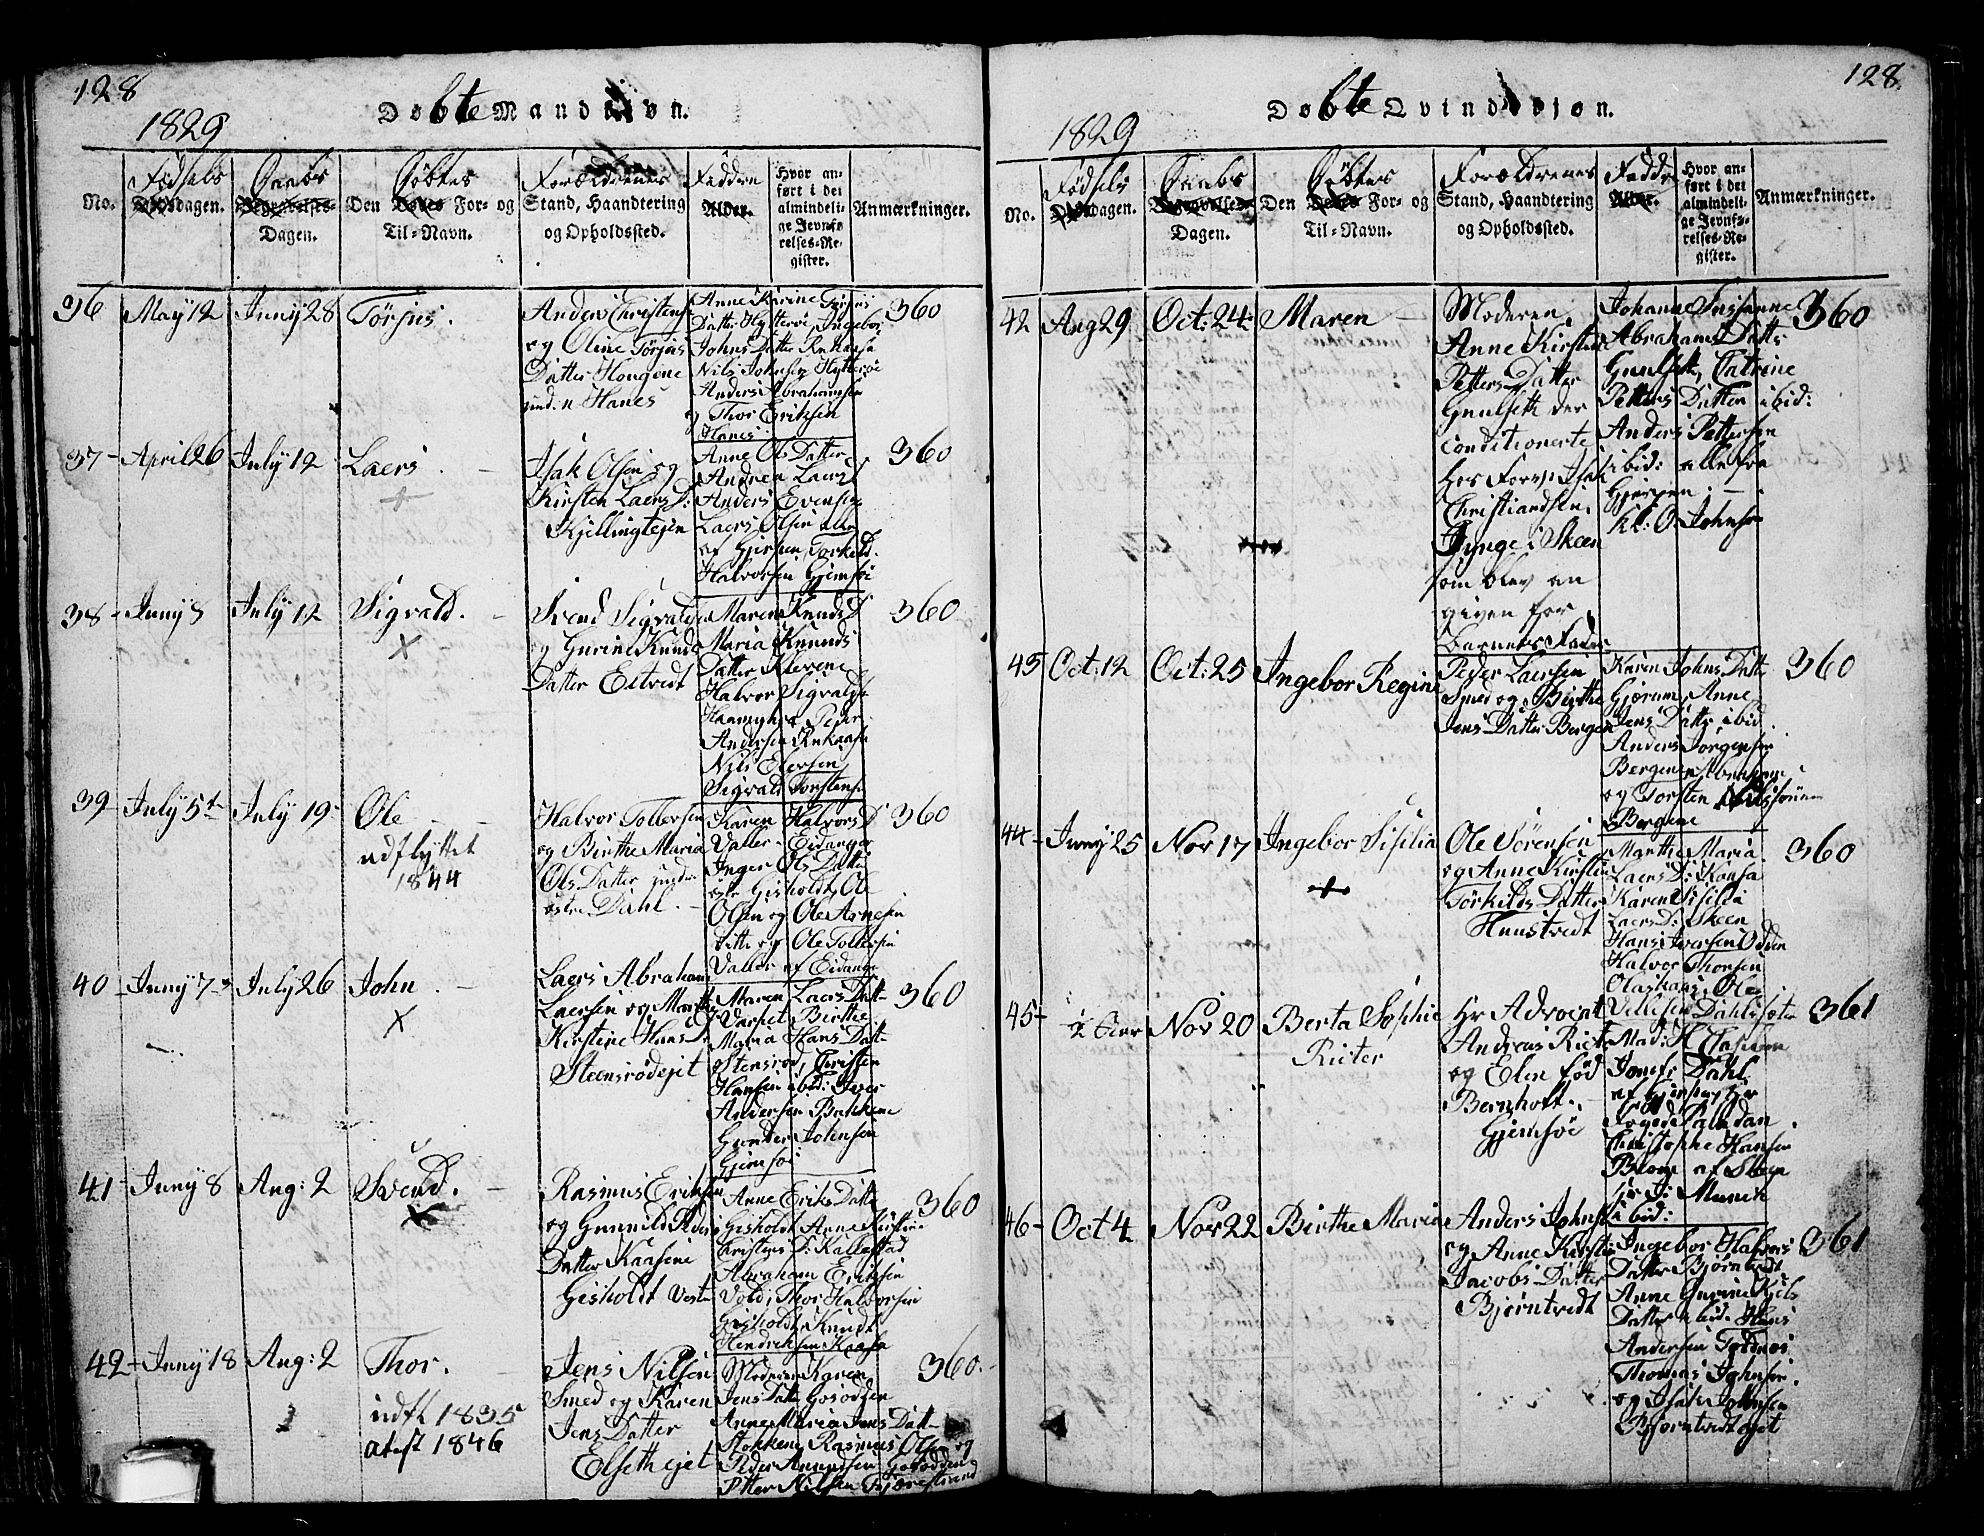 128
1829
Døbte Mandkiøn.
No.
Fødsels Dagen.
Daabs Dagen.
Den Døbtes For- og Til-Navn.
Forældrenes Stand, Haandtering og Opholdssted.
Faddere
Alder.
Hvor anført i det almindelige Jevnførelses-Register.
Anmærkninger.
36 May 12 Juny 28 Tørjus.
Anders Christens
og Oline Tørjus
Datter Hougene
und. n Hanes
Anne Karine Tørjus
Datter Hytterøe Ingebor
Johns Datter Rukaasa
Nils Johnsen Hytterøe
Anders Abrahamsen
og Thor Eriksen
Hanes
360
37 April 26 July 12 Laers.
Isak Olsen og
Kirsten Laers D:
Kjellingtejen
Anne Ols Datter
Andrea Laers
Anders Evensen
Laers Olsen alle
af Gjerpen Torkild
Halvorsen Gjemsøe
360
38 Juny 5 July 12 Sigvald.
Svend Sigvalds
og Gurine Knuds
Datter Eitredt
Maren Knuds D
Maria Knuds
Datter Klevene
Halvor Sigvalds
Peder
Andersen Rukaasa
Nils Elersen
Sigvald Torstens
360
39 July 5te July 19 Ole
udflyttet
1844
Halvor Tollersen
og Birthe Maria
Ols Datter und.
østre Dahl.
Karen Halvors D
Valler Eidanger
Inger Ols Datter
østr Gisholdt, Ole
Olsen og Ole Arnesen
ditto og Ole Tollersen
Valler af Eidanger
360
40 Juny 7 July 26 John.
Laers Abraham
Laersen og Marthe
Kirstine Hans D:
Steensrødejet
Maren Laers Datt
Varset Birthe
Maria Hans Datt
Stensrød, Christen
Hansen ibid: Isaer
Andersen Bakkene
Gunder Johnsen
Gjemsøe
360
41 Juny 8 Aug: 2 Svend.
Rasmus Eriksen
og Gunild Peders
Datter Kaasene
Gisholdt Vestre
Anne Eriks Datter
Gisholdt Anne Kirstine
Christens D: Kallestad
Abraham Eriksen
Vold, Thor Halvorsen
Gisholdt, Knudt
Hendriksen Kaasa
360
42 Juny 18 Aug: 2 Thor.
indfl 1835
atest 1846
Jens Nilsen
Smed og Karen
Jens Datter
Elsethejet
Moderen Karen
Jens Datter Gosodden
Anne Maria Jens Datt
Stokkene Rasmus Olsen og
Peder Amundsen Gosodden
Petter Nilsen Fjærestrand
360.
128.
1829
Døbte Qvindekjøn.
No.
Fødsels Dagen.
Daabs Dagen.
Den Døbtes For- og Til-Navn.
Forældrenes Stand, Haandtering og Opholdssted.
Faddr
Alder.
Hvor anført i det almindelige Jevnførelses-Register.
Anmærkninger.
42 Aug 29 Oct: 24 Maren
Moderen
Anne Kirstin
Petters Datter
Gulseth der
conditionerte
hos Forsp: Isak
Christiandsen
Bynge i Skeen
som blev an
given for
Barnets Fader
Johanne Susanne
Abrahams Datter
Gulset, Catrine
Petters Datter ibid:
Anders Pettersen
ibid: alle fra
Gjerpen
Kl: O Johnsen
360
43 Oct: 12 Oct: 25 Ingebor Regine
Peder Laersen
Smed og Birthe
Jens Datter Bergen
Karen Johns Datte
Gjørum, Anne
Jens Datter ibid.
Anders Jørgensen
Bergene, Abraham
og Torsten Nilssønner
Bergene
360
44 Juny 25 Nov 17 Ingebor Sisilia
Ole Sørensen
og Anne Kirstin
Torkilds Datter
Hunstvedt
Marthe Maria
Laers D: Kaasa
Karen Sisilia
Laers D: Skeen
Hans Iversen Odden
Halvor Thorsen
Olashans, Ole
Villisen Dahlsseter
360
45 ½ Aar Nov 20 Berta Sophie
Rieter
Hr Advocat
Andreas Riet
og Elen fød
Bernhott
Gjemsøe
Mad: H Clasen
Jomf: Dahl
af Gjerpen Hr
Foged Paludan
Christophe Hansen
Blom af Skeen
Hr J: Munch
ibid:
361
46 Oct 4 Nov 22 Birthe Marie
Anders Johns
og Anne Kirsti
Jacobs Datter
Bjørntvedt
Ingebor Halvors
Datter Bjørntvedt
Anne Gurine Niels
Datter ibid: Hans
Andersen Toldnes
Thomas Johnsen
og Isak Johnsen
Bjørntvedtejet
361